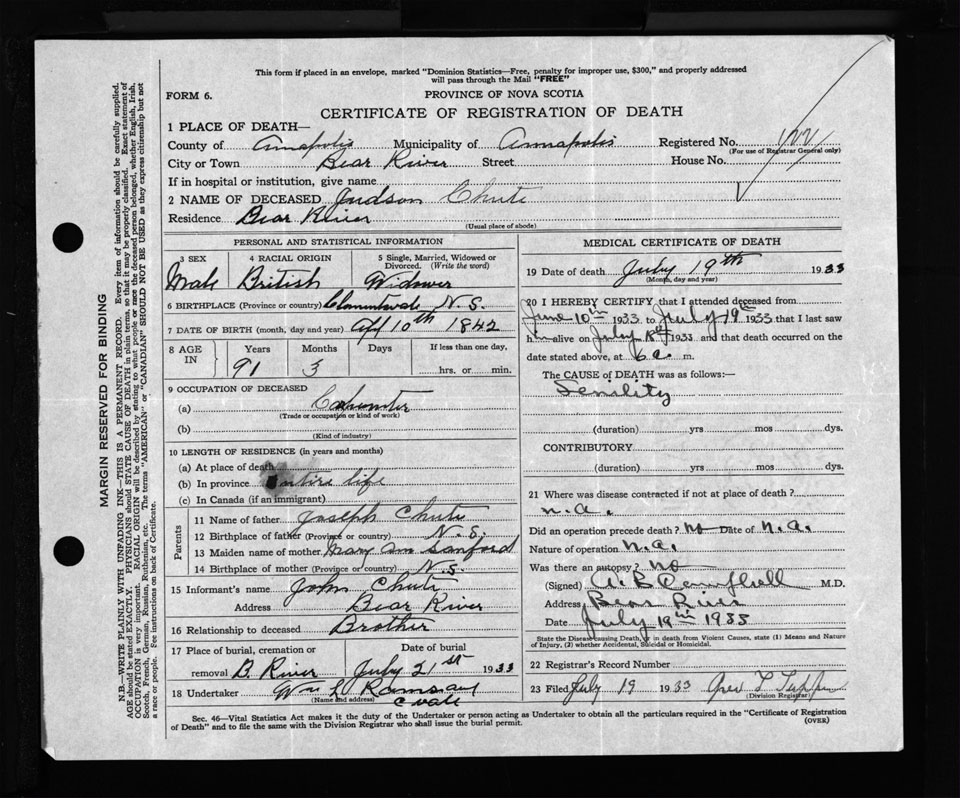 This form if placed in an envelope, marked "Dominion Statistics—Free, penalty for improper use, $300," and properly addressed
will pass through the Mail "FREE"
FORM 6.
PROVINCE OF NOVA SCOTIA
CERTIFICATE OF REGISTRATION OF DEATH
1 PLACE OF DEATH—
County of Annapolis Municipality of Annapolis Registered No.
(For use of Registrar General only)
City or Town Bear River Street House No.
If in hospital or institution, give name
2 NAME OF DECEASED Judson Chute
Residence Bear River
(Usual place of abode)
PERSONAL AND STATISTICAL INFORMATION
3 SEX 4 RACIAL ORIGIN 5 Single, Married, Widowed or
Divorced. (Write the word)
Male British Widower
6 BIRTHPLACE (Province or country) N.S.
7 DATE OF BIRTH (month, day and year) Apl 10th 1842
8 AGE IN Years Months Days If less than one day,
91 3 hrs. or min.
9 OCCUPATION OF DECEASED
(a) Carpenter
(Trade or occupation or kind of work)
(b)
(Kind of industry)
10 LENGTH OF RESIDENCE (in years and months)
(a) At place of death
(b) In province Entire life
(c) In Canada (if an immigrant)
Parents
11 Name of father Joseph Chute
12 Birthplace of father (Province or country) N.S.
13 Maiden name of mother Mary Ann Sanford
14 Birthplace of mother (Province or country) N.S.
15 Informant's name John Chute
Address Bear River
16 Relationship to deceased Brother
17 Place of burial, cremation or Date of burial
removal B. River July 21st 1933
18 Undertaker Wm L
(Name and address) C vale
MEDICAL CERTIFICATE OF DEATH
19 Date of death July 19th 1933
(Month, day and year)
20 I HEREBY CERTIFY that I attended deceased from
June 10th 1933 to July 19th 1933 that I last saw
him alive on July 18th 1933 and that death occurred on the
date stated above, at 6 a. m.
The CAUSE of DEATH was as follows:—
Senility
(duration) yrs mos dys.
CONTRIBUTORY
(duration) yrs mos dys.
21 Where was disease contracted if not at place of death?
n.a.
Did an operation precede death? no Date of n.a.
Nature of operation n.a.
Was there an autopsy? no
(Signed) A. B. Campbell M.D.
Address Bear River
Date July 19th 1933
State the Disease causing Death, or in death from Violent Causes, state (1) Means and Nature
of Injury, (2) whether Accidental, Suicidal or Homicidal.
22 Registrar's Record Number
23 Filed July 19 1933
(Division Registrar)
Sec. 46—Vital Statistics Act makes it the duty of the Undertaker or person acting as Undertaker to obtain all the particulars required in the "Certificate of Registration
of Death" and to file the same with the Division Registrar who shall issue the burial permit.
(OVER)
MARGIN RESERVED FOR BINDING
N.B.—WRITE PLAINLY WITH UNFADING INK—THIS IS A PERMANENT RECORD. Every item of information should be carefully supplied.
AGE should be stated EXACTLY. PHYSICIANS should STATE CAUSE OF DEATH in plain terms, so that it may be properly classified. Exact statement of
OCCUPATION is very important. RACIAL ORIGIN will be described by stating to what people or race the deceased person belonged, whether English, Irish,
Scotch, French, German, Russian, Ruthenian, etc. The terms "AMERICAN" or "CANADIAN" SHOULD NOT BE USED as they express citizenship but not
a race or people. See instructions on back of Certificate.